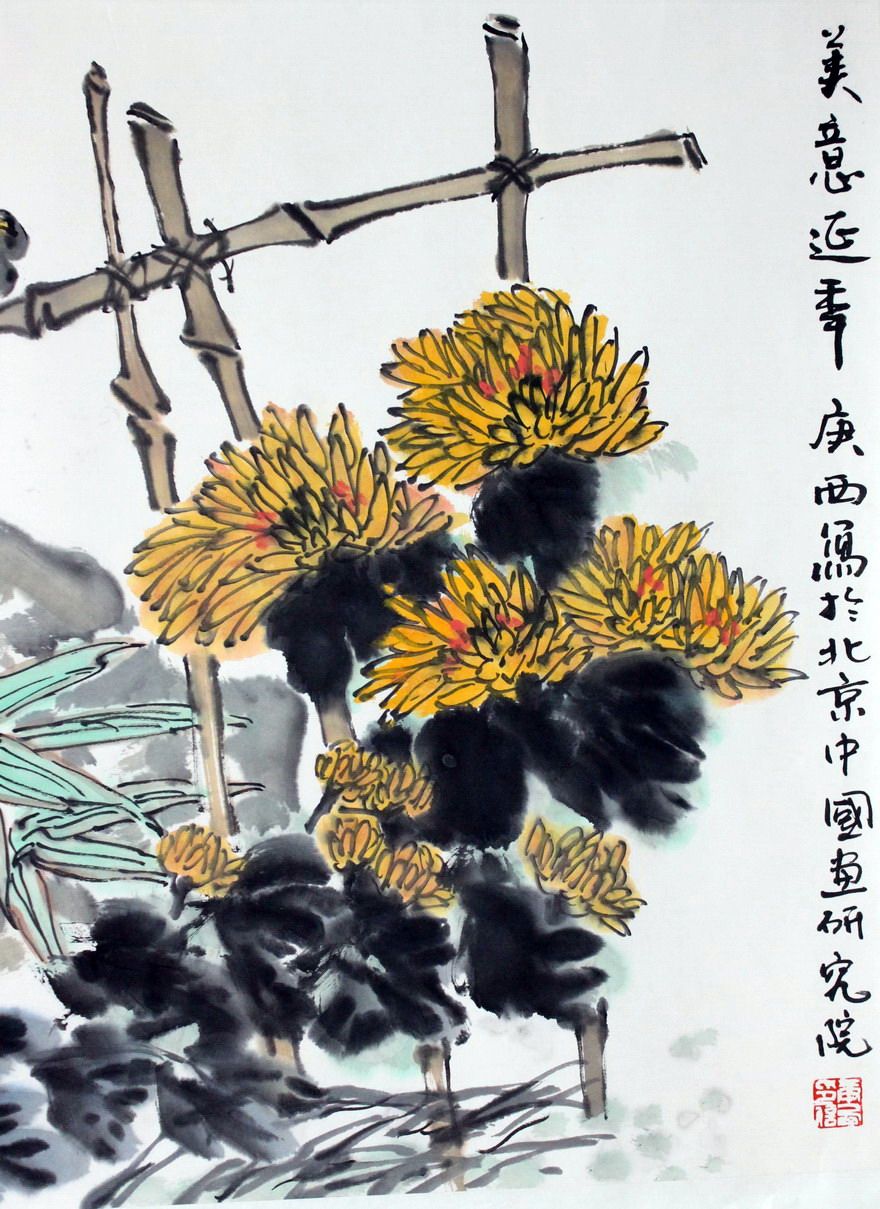 美意延季 庚西寫於北京中國画研究院